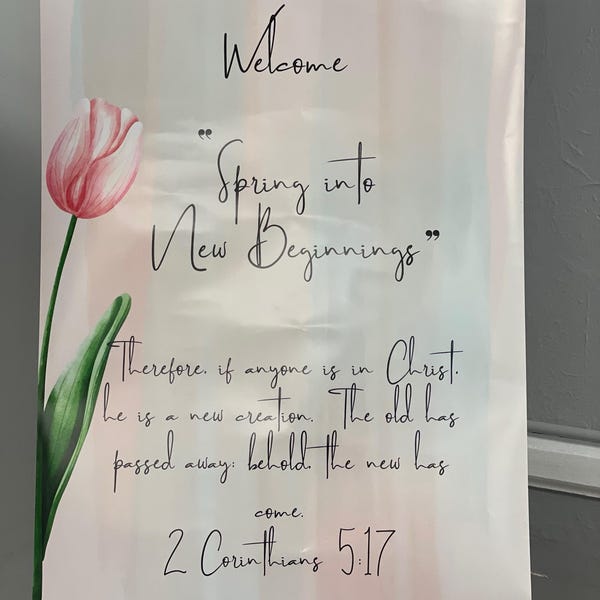 Welcome
"Spring into
New Beginnings"
Therefore, if anyone is in Christ,
he is a new creation. The old has
passed away; behold, the new has
come.
2 Corinthians 5:17